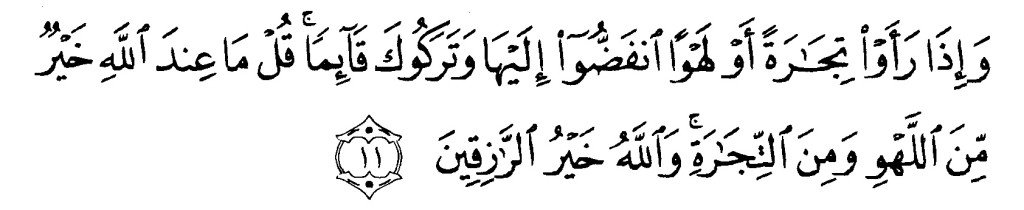 وَإِذَا رَأَوْا۟ تِجَٰرَةً أَوْ لَهْوًا ٱنفَضُّوٓا۟ إِلَيْهَا وَتَرَكُوكَ قَآئِمًا ۚ قُلْ مَا عِندَ ٱللَّهِ خَيْرٌ
مِّنَ ٱللَّهْوِ وَمِنَ ٱلتِّجَٰرَةِ ۚ وَٱللَّهُ خَيْرُ ٱلرَّٰزِقِينَ ١١